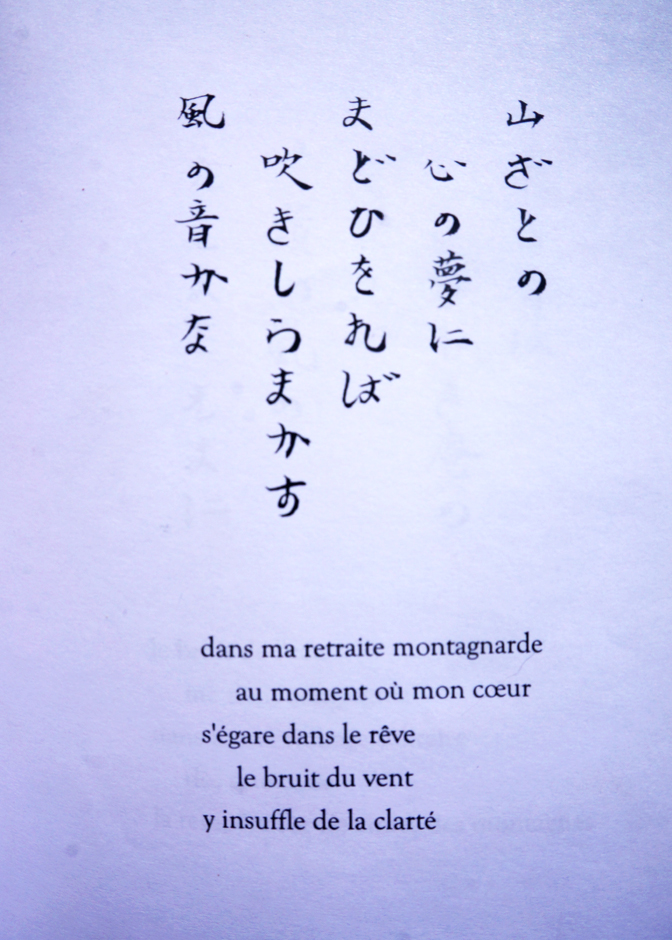 山ざとの
心の夢に
まどひをれば
吹きしらまかす
風の音かな
dans ma retraite montagnarde
au moment où mon cœur
s'égare dans le rêve
le bruit du vent
y insuffle de la clarté